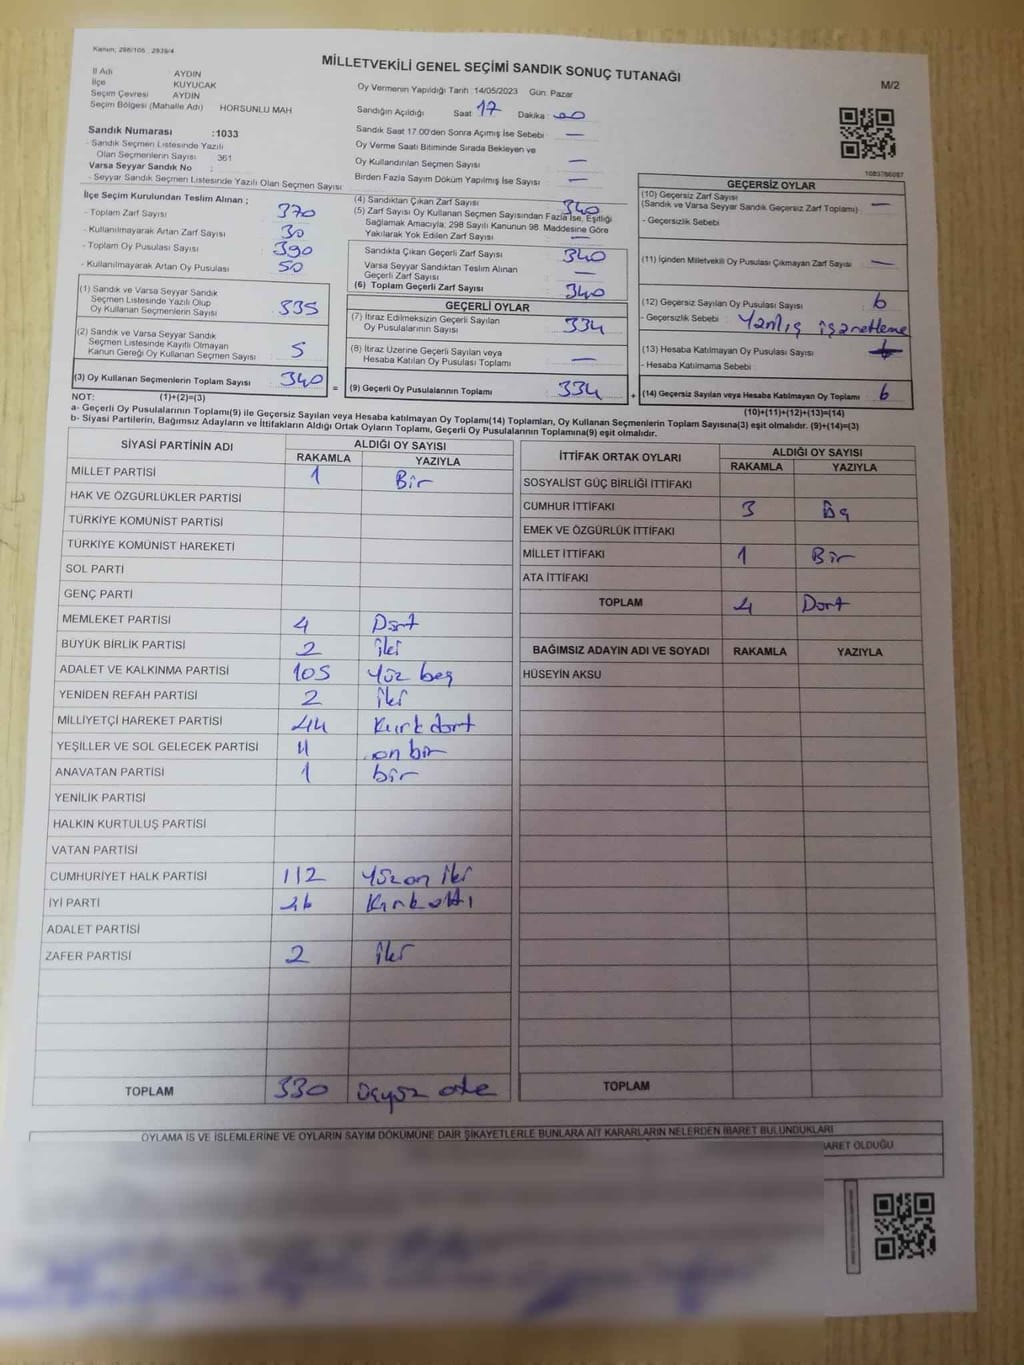 Kanun; 298/105 , 2839/4
MİLLETVEKİLİ GENEL SEÇİMİ SANDIK SONUÇ TUTANAĞI
M/2
İl Adı AYDIN
İlçe KUYUCAK
Seçim Çevresi AYDIN
Seçim Bölgesi (Mahalle Adı) HORSUNLU MAH
Sandık Numarası :1033
- Sandık Seçmen Listesinde Yazılı
Olan Seçmenlerin Sayısı 361
Varsa Seyyar Sandık No :
- Seyyar Sandık Seçmen Listesinde Yazılı Olan Seçmen Sayısı
Oy Vermenin Yapıldığı Tarih :14/05/2023 Gün: Pazar
Sandığın Açıldığı Saat : 17 Dakika : 00
Sandık Saat 17.00'den Sonra Açımış İse Sebebi : —
Oy Verme Saati Bitiminde Sırada Bekleyen ve
Oy Kullandırılan Seçmen Sayısı : —
Birden Fazla Sayım Döküm Yapılmış İse Sayısı : —
İlçe Seçim Kurulundan Teslim Alınan ;
- Toplam Zarf Sayısı : 370
- Kullanılmayarak Artan Zarf Sayısı : 30
- Toplam Oy Pusulası Sayısı : 390
- Kullanılmayarak Artan Oy Pusulası : 50
(1) Sandık ve Varsa Seyyar Sandık
Seçmen Listesinde Yazılı Olup
Oy Kullanan Seçmenlerin Sayısı : 335
(2) Sandık ve Varsa Seyyar Sandık
Seçmen Listesinde Kayıtlı Olmayan
Kanun Gereği Oy Kullanan Seçmen Sayısı : 5
(3) Oy Kullanan Seçmenlerin Toplam Sayısı : 340
(4) Sandıktan Çıkan Zarf Sayısı : 340
(5) Zarf Sayısı Oy Kullanan Seçmen Sayısından Fazla İse, Eşitliği
Sağlamak Amacıyla, 298 Sayılı Kanunun 98. Maddesine Göre
Yakılarak Yok Edilen Zarf Sayısı : —
Sandıkta Çıkan Geçerli Zarf Sayısı : 340
Varsa Seyyar Sandıktan Teslim Alınan
Geçerli Zarf Sayısı : —
(6) Toplam Geçerli Zarf Sayısı : 340
GEÇERLİ OYLAR
(7) İtiraz Edilmeksizin Geçerli Sayılan
Oy Pusulalarının Sayısı : 334
(8) İtiraz Üzerine Geçerli Sayılan veya
Hesaba Katılan Oy Pusulası Toplamı : —
= (9) Geçerli Oy Pusulalarının Toplamı : 334
1083786087
GEÇERSİZ OYLAR
(10) Geçersiz Zarf Sayısı
(Sandık ve Varsa Seyyar Sandık Geçersiz Zarf Toplamı) : —
- Geçersizlik Sebebi :
(11) İçinden Milletvekili Oy Pusulası Çıkmayan Zarf Sayısı : —
(12) Geçersiz Sayılan Oy Pusulası Sayısı : 6
- Geçersizlik Sebebi : Yanlış işaretleme
(13) Hesaba Katılmayan Oy Pusulası Sayısı
- Hesaba Katılmama Sebebi
+ (14) Geçersiz Sayılan veya Hesaba Katılmayan Oy Toplamı : 6
NOT: (1)+(2)=(3)
(10)+(11)+(12)+(13)=(14)
a- Geçerli Oy Pusulalarının Toplamı(9) ile Geçersiz Sayılan veya Hesaba katılmayan Oy Toplamı(14) Toplamları, Oy Kullanan Seçmenlerin Toplam Sayısına(3) eşit olmalıdır. (9)+(14)=(3)
b- Siyasi Partilerin, Bağımsız Adayların ve İttifakların Aldığı Ortak Oyların Toplamı, Geçerli Oy Pusulalarının Toplamına(9) eşit olmalıdır.
SİYASİ PARTİNİN ADI ALDIĞI OY SAYISI
RAKAMLA YAZIYLA
MİLLET PARTİSİ 1 Bir
HAK VE ÖZGÜRLÜKLER PARTİSİ
TÜRKİYE KOMÜNİST PARTİSİ
TÜRKİYE KOMÜNİST HAREKETİ
SOL PARTİ
GENÇ PARTİ
MEMLEKET PARTİSİ 4 Dört
BÜYÜK BİRLİK PARTİSİ 2 iki
ADALET VE KALKINMA PARTİSİ 105 Yüz beş
YENİDEN REFAH PARTİSİ 2 iki
MİLLİYETÇİ HAREKET PARTİSİ 44 Kırk dört
YEŞİLLER VE SOL GELECEK PARTİSİ 11 on bir
ANAVATAN PARTİSİ 1 bir
YENİLİK PARTİSİ
HALKIN KURTULUŞ PARTİSİ
VATAN PARTİSİ
CUMHURİYET HALK PARTİSİ 112 Yüz on iki
İYİ PARTİ 46 Kırk altı
ADALET PARTİSİ
ZAFER PARTİSİ 2 iki
TOPLAM 330 üçyüz otuz
İTTİFAK ORTAK OYLARI ALDIĞI OY SAYISI
RAKAMLA YAZIYLA
SOSYALİST GÜÇ BİRLİĞİ İTTİFAKI
CUMHUR İTTİFAKI 3 üç
EMEK VE ÖZGÜRLÜK İTTİFAKI
MİLLET İTTİFAKI 1 Bir
ATA İTTİFAKI
TOPLAM 4 Dört
BAĞIMSIZ ADAYIN ADI VE SOYADI RAKAMLA YAZIYLA
HÜSEYİN AKSU
TOPLAM
OYLAMA İŞ VE İŞLEMLERİNE VE OYLARIN SAYIM DÖKÜMÜNE DAİR ŞİKAYETLERLE BUNLARA AİT KARARLARIN NELERDEN İBARET BULUNDUKLARI
BARET OLDUĞU